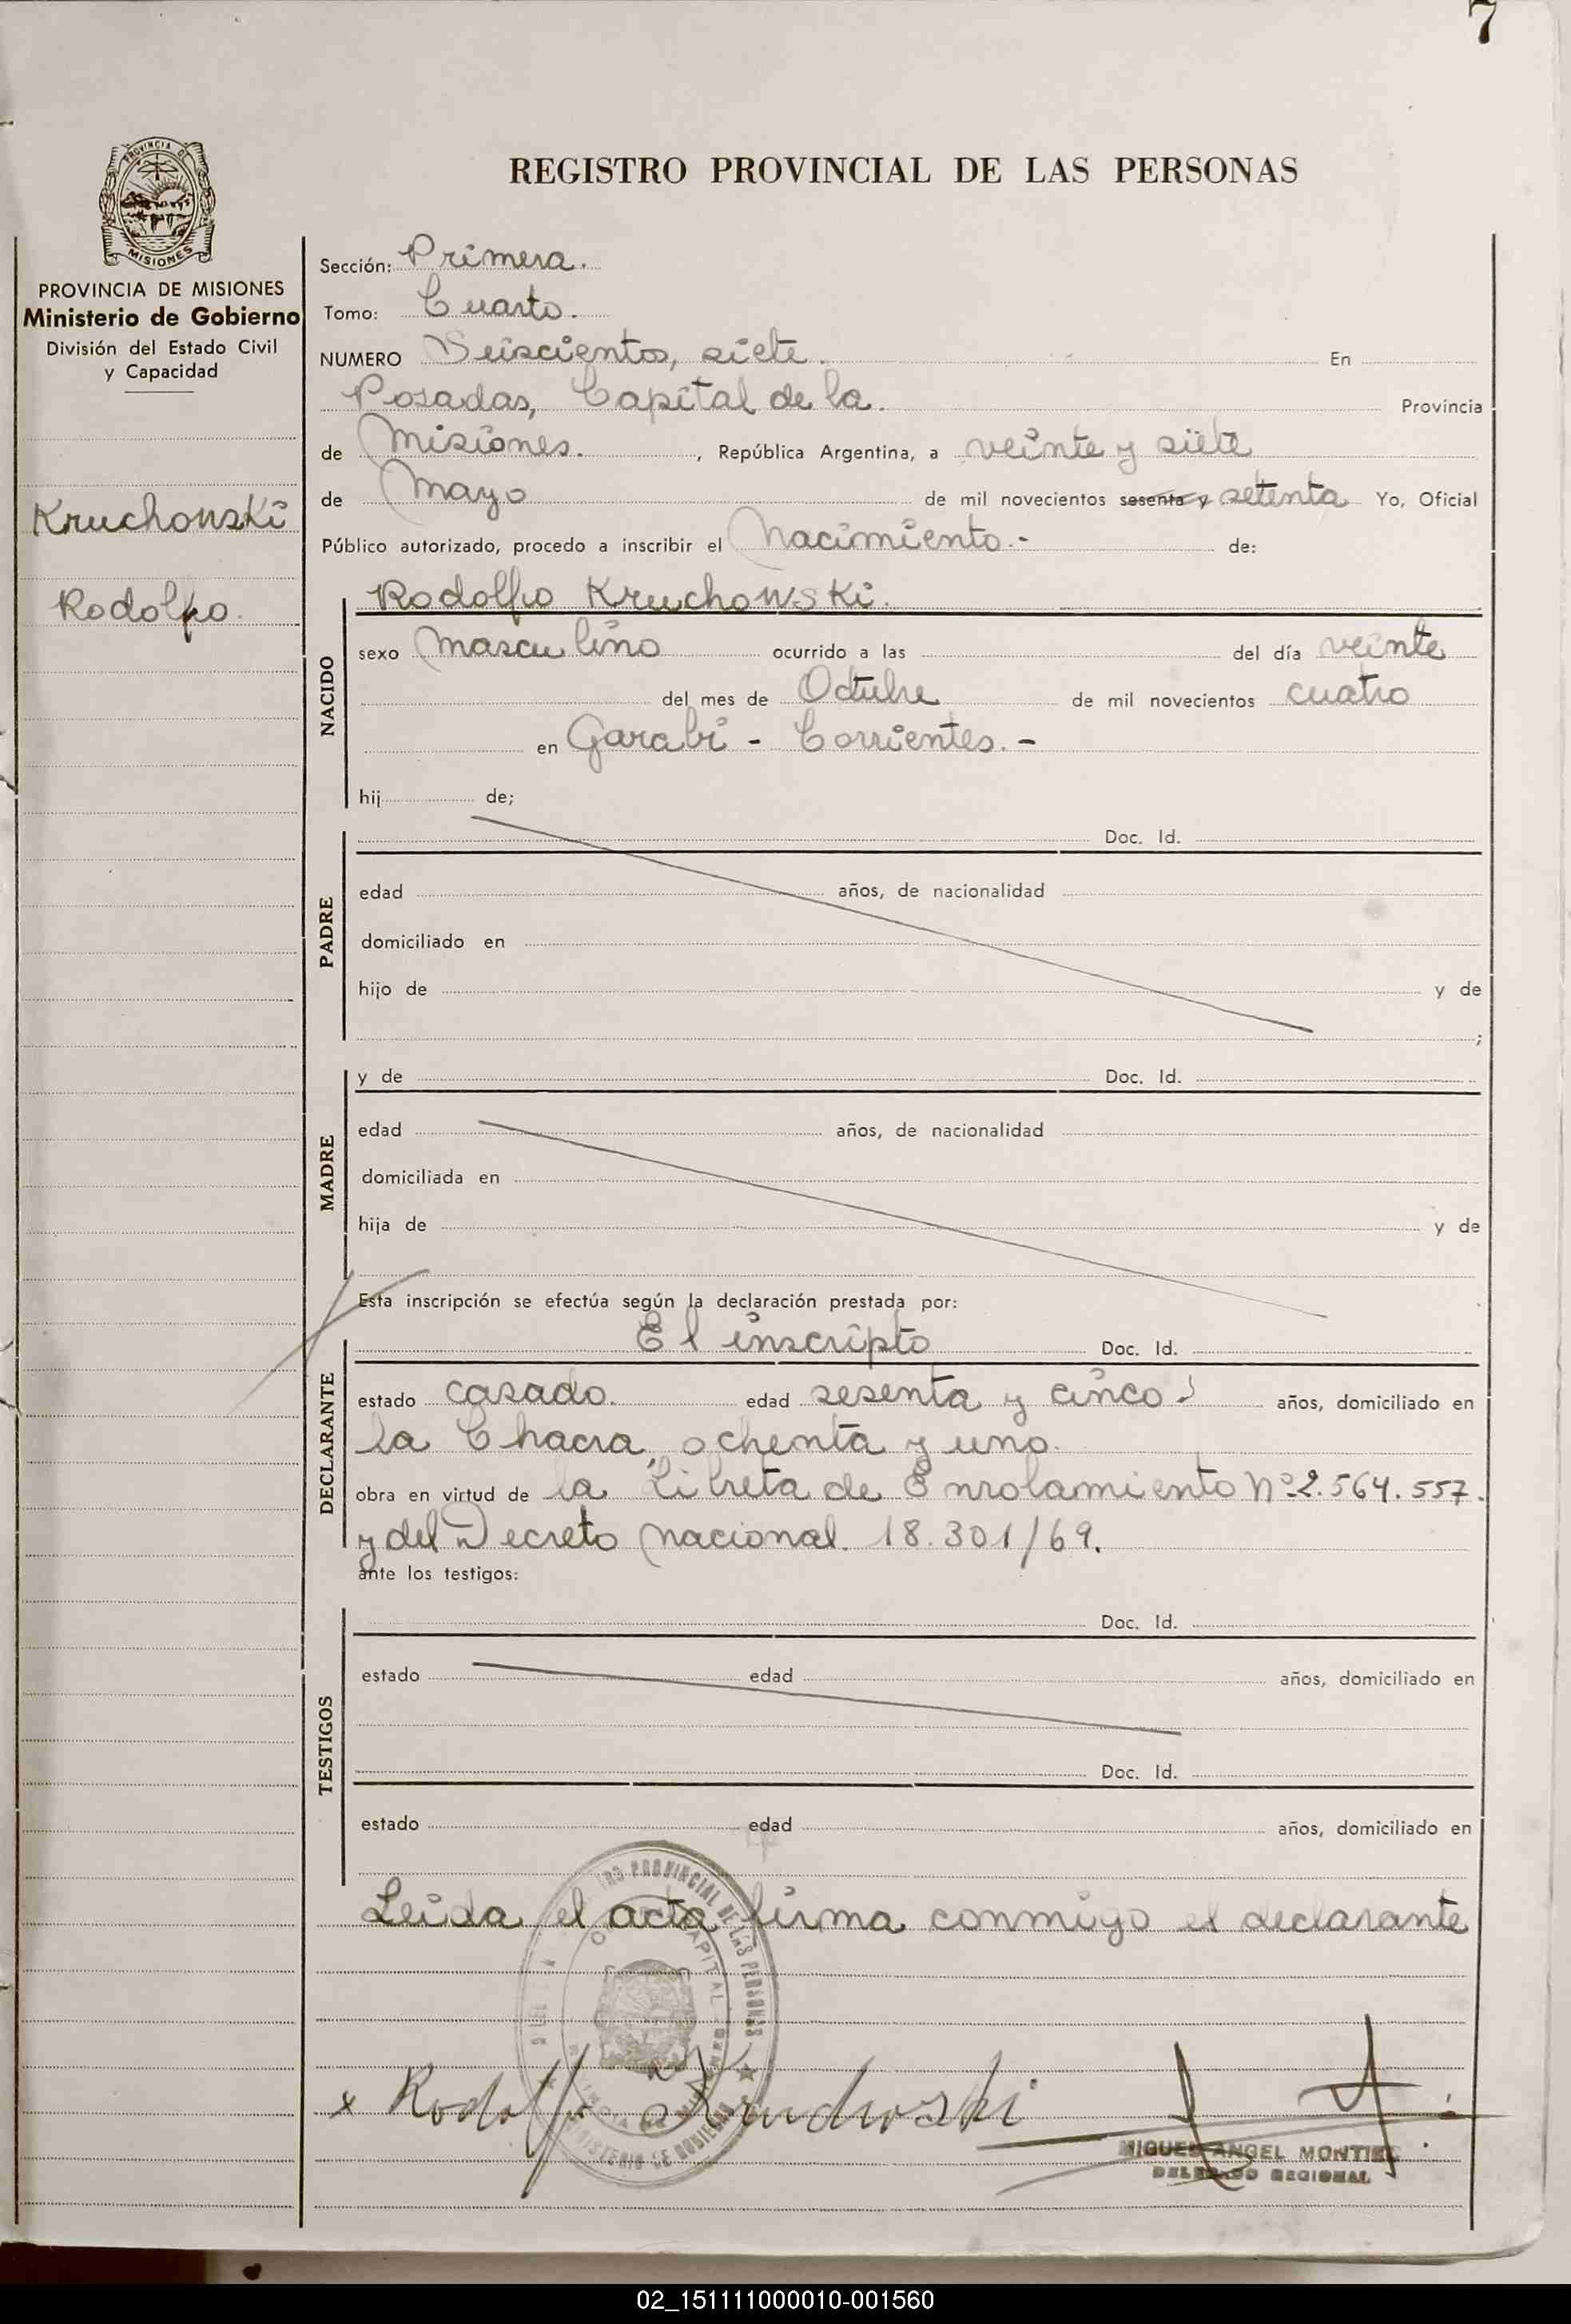 7
REGISTRO PROVINCIAL DE LAS PERSONAS
PROVINCIA DE
MISIONES
PROVINCIA DE MISIONES
Ministerio de Gobierno
División del Estado Civil
y Capacidad
Kruchowski
Rodolfo.
Sección: Primera.
Tomo: Cuarto.
NUMERO Seiscientos, siete. En
Posadas, Capital de la. Provincia
de Misiones. , República Argentina, a veinte y siete
de Mayo de mil novecientos sesenta y setenta Yo, Oficial
Público autorizado, procedo a inscribir el Nacimiento.- de:
NACIDO
Rodolfo Kruchowski.
sexo masculino ocurrido a las del día veinte
del mes de Octubre de mil novecientos cuatro
en Garabí - Corrientes. -
hij de;
PADRE
Doc. Id.
edad años, de nacionalidad
domiciliado en
hijo de y de
;
MADRE
y de Doc. Id.
edad años, de nacionalidad
domiciliada en
hija de y de
Esta inscripción se efectúa según la declaración prestada por:
DECLARANTE
El inscripto Doc. Id.
estado casado. edad sesenta y cinco años, domiciliado en
la Chacra, ochenta y uno.
obra en virtud de la Libreta de Enrolamiento Nº 2.564.557.
y del Decreto Nacional. 18.301/69.
ante los testigos:
TESTIGOS
Doc. Id.
estado edad años, domiciliado en
Doc. Id.
estado edad años, domiciliado en
Leída el acta firma conmigo el declarante
PROVINCIAL DE LAS PERSONAS
CAPITAL
MINISTERIO DE GOBIERNO
x Rodolfo Kruchoski
MIGUEL ANGEL MONTIEL
DELEGADO REGIONAL
02_151111000010-001560